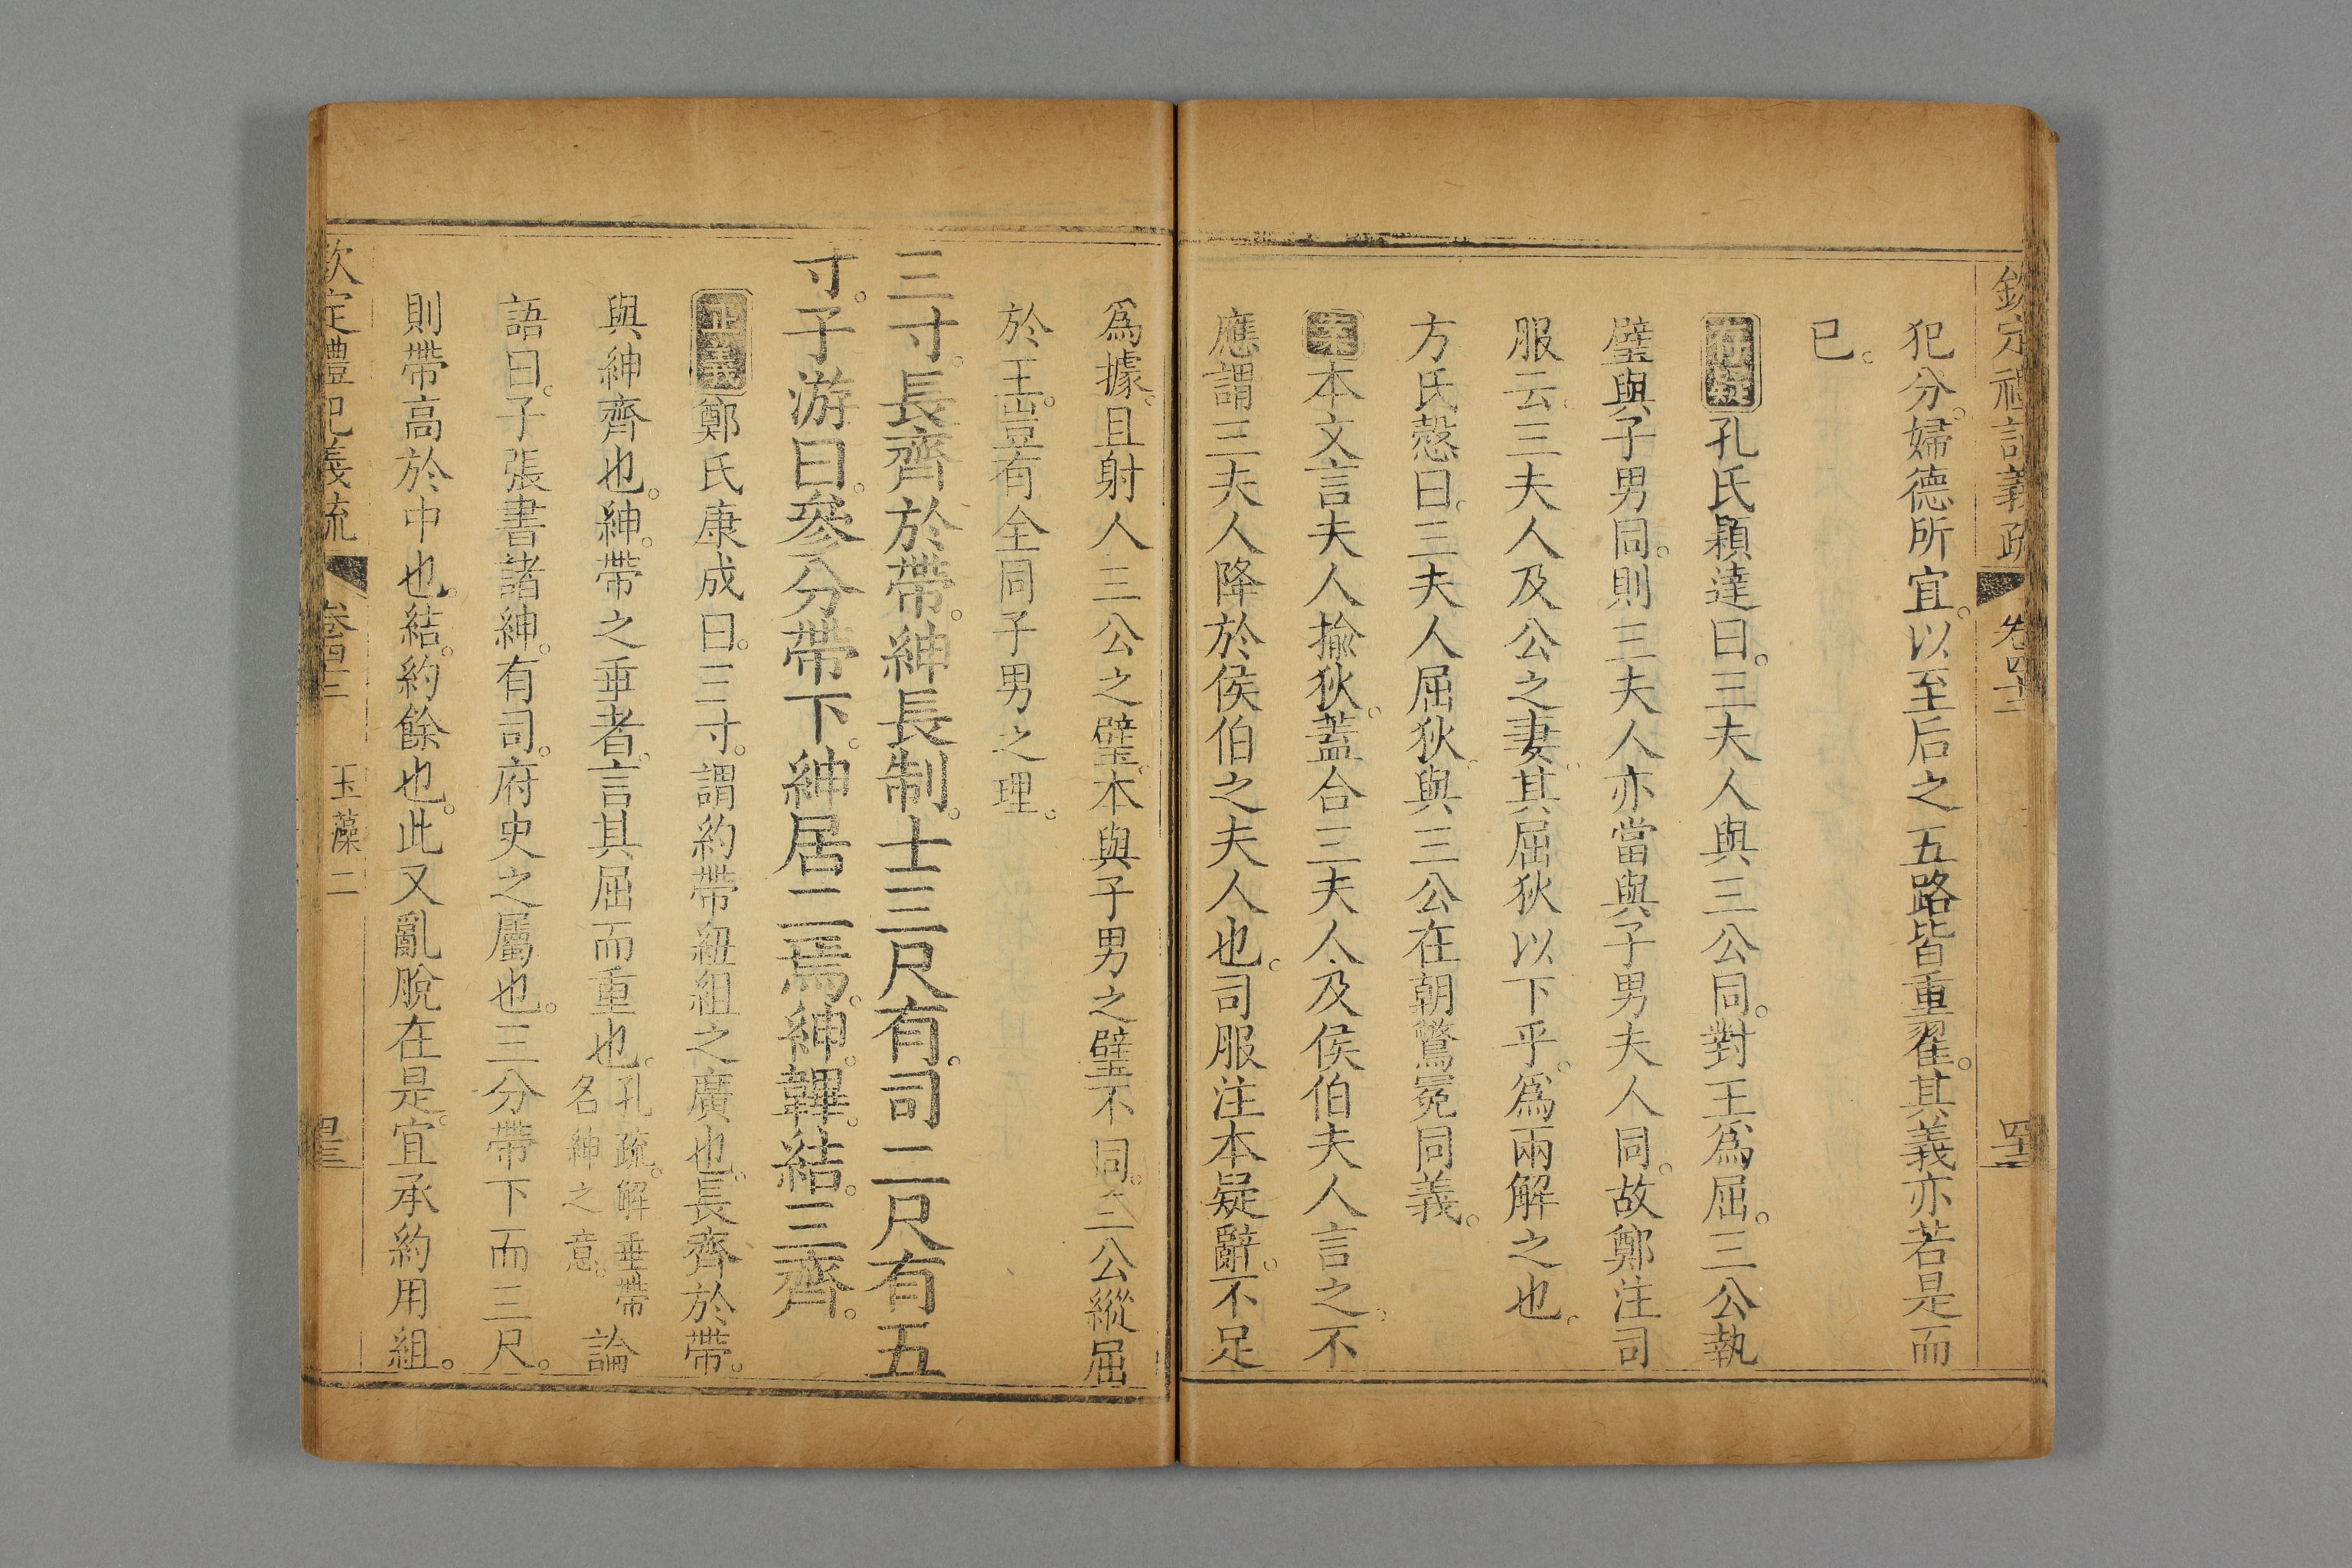 欽定禮記義疏 卷四十二
犯分。婦德所宜。以至后之五路皆重翟。其義亦若是而
已。
存疑 孔氏穎達曰。三夫人與三公同。對王爲屈。三公執
璧與子男同。則三夫人亦當與子男夫人同。故鄭注司
服云。三夫人及公之妻。其屈狄以下乎。爲兩解之也。
方氏慤曰。三夫人屈狄。與三公在朝鷩冕同義。
案 本文言夫人揄狄。蓋合三夫人及侯伯夫人言之。不
應謂三夫人降於侯伯之夫人也。司服注本疑辭。不足
爲據。且射人三公之璧。本與子男之璧不同。三公縱屈
於王。豈有全同子男之理。
三寸。長齊於帶。紳長制。士三尺。有司二尺有五
寸。子游曰。參分帶下。紳居二焉。紳。韠。結。三齊。
正義 鄭氏康成曰。三寸。謂約帶紐組之廣也。長齊於帶。
與紳齊也。紳。帶之垂者。言其屈而重也。孔疏。解垂帶名紳之意。論
語曰。子張書諸紳。有司。府史之屬也。三分帶下而三尺。
則帶高於中也。結。約餘也。此又亂脫在是。宜承約用組。
欽定禮記義疏 卷四十二 玉藻二